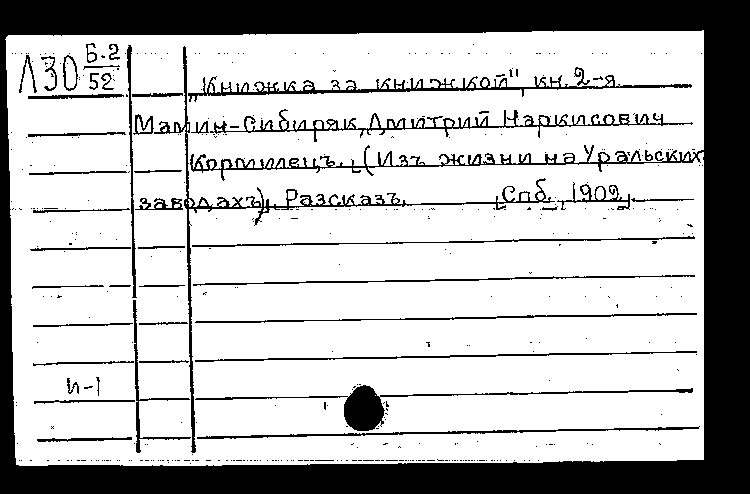 Л30 Б.2/52
„Книжка за книжкой", кн. 2-я
Мамин-Сибиряк, Дмитрий Наркисович
Кормилецъ. [(Изъ жизни на Уральских
заводахъ)]. Разсказъ. [Спб., 1902].
И-1